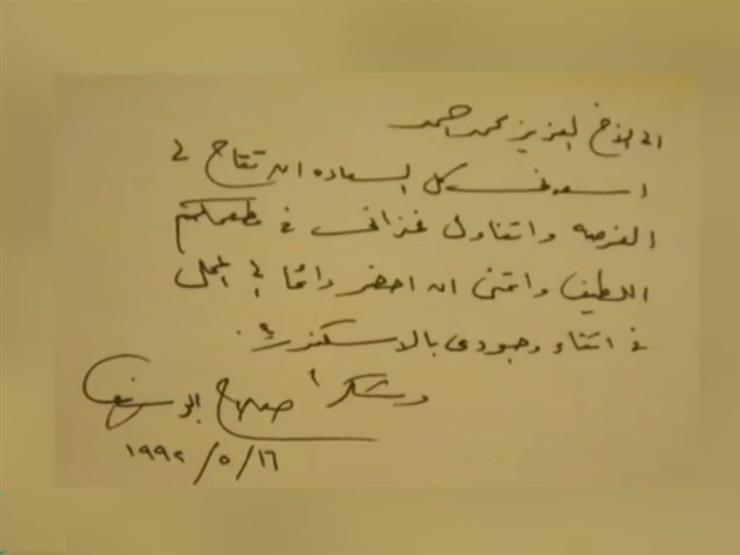 الى الاخ العزيز محمد احمد
اسعدنى كل السعاده ان تتاح لى
الفرصه واتناول غذائى فى مطعمكم
اللطيف واتمنى ان احضر دائما الى المحل
فى اثناء وجودى بالاسكندرية.
وشكرا
١٩٩٢/٥/١٦